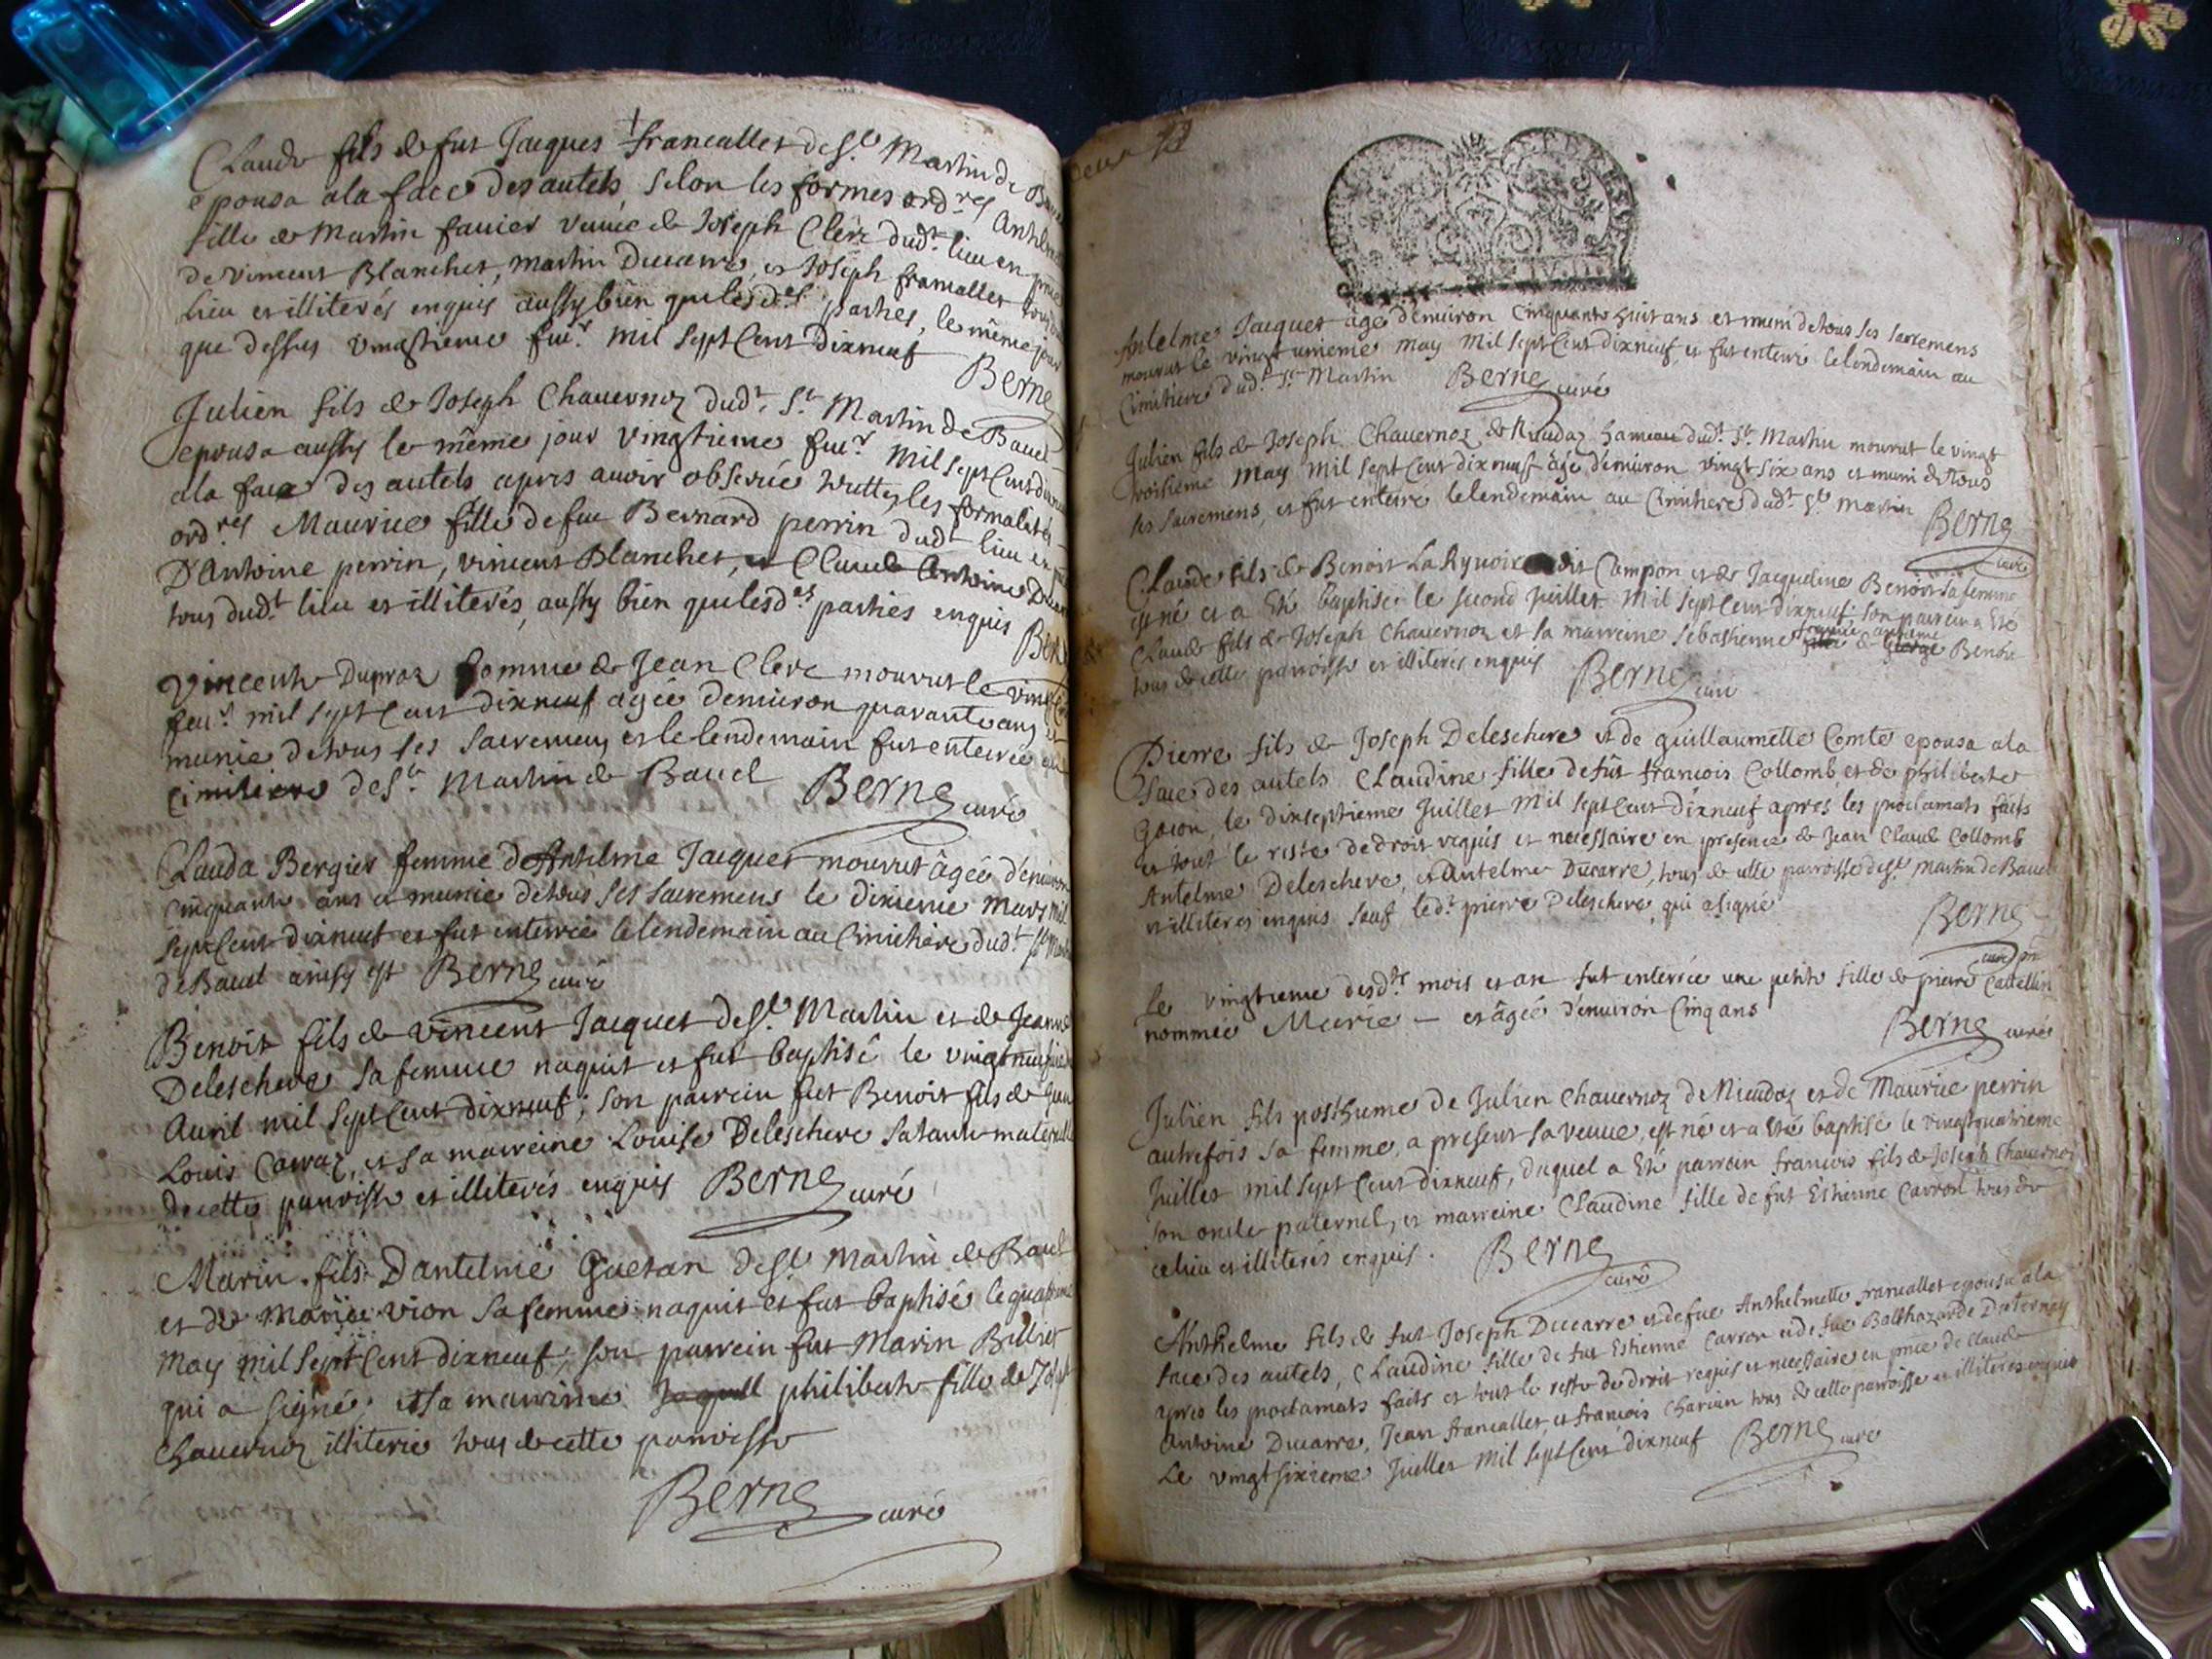 Claude fils de fut Jacques francallet de St Martin de
epousa a la face des autels, selon les formes ordres
fille de Martin favier veuve de Joseph Clerc dudt lieu en
de vincent Blanchet, Martin Ducarre, et Joseph francallet tous
lieu et illiterés enquis aussy bien que lesdes parties, le même jour
que dessus vingtieme fevr mil sept Cent dixneuf
Berne
Julien fils de Joseph Chavernoz dudt St Martin de Bavel
epousa aussy le même jour vingtieme fevr Mil sept Cent
a la face des autels apres avoir observé touttes les formalités
ordres Maurice fille de feue Bernard perrin dudt lieu en
D'Antoine perrin, vincent Blanchet, et Claude Antoine
tous dudt lieu et illiterés, aussy bien que lesdes parties enquis
Vincente Dupraz femme de Jean Clerc mourut le
fevr mil sept Cent dixneuf agée denviron quarante ans et
munie de tous ses sacremens et le lendemain fut enterrée au
Cimitiere de St Martin de Bavel Berne curé
Clauda Bergier femme d'Antelme Jacquet mourut âgée d'environ
cinquante ans et munie de tous ses sacremens le dixieme mars mil
sept Cent dixneuf et fut enterrée le lendemain au Cimitiere dudt St
de Bavel ainsy est Berne curé
Benoit fils de vincent Jacquet de St Martin et de Jeanne
Deleschere sa femme naquit et fut baptisé le
Avril mil sept Cent dixneuf; son parrein fut Benoit fils de
Louis Carraz, et sa marreine Louise Deleschere sa tante maternelle
de cette parroisse et illiterés enquis Berne curé
Marin fils D'antelme Guetan de St Martin de Bavel
et de Marie vion sa femme naquit et fut baptisé le
May mil sept Cent dixneuf; son parrein fut Marin Billiet
qui a signé et sa marreine philiberte fille de
Chavernoz illiterée tous de cette parroisse
Berne curé
Antelme Jacquet âgé d'environ cinquante huit ans et muni de tous ses sacremens
mourut le vingt unieme may mil sept Cent dixneuf, et fut enterré le lendemain au
Cimitiere dudt St Martin Berne curé
Julien fils de Joseph Chavernoz de hameau dudt St Martin mourut le vingt
troisieme May mil sept Cent dixneuf âgé d'environ vingt six ans et muni de tous
ses sacremens, et fut enterré le lendemain au Cimitiere dudt St Martin
Berne curé
Claude fils de Benoit dit Campon et de Jacqueline Benoit sa femme
est né et a Eté baptisé le second juillet mil sept Cent dixneuf; son parrein a Eté
Claude fils de Joseph Chavernoz et sa marreine sebastienne Benoit
tous de cette parroisse et illiterés enquis Berne curé
Pierre fils de Joseph Deleschere et de guillaumette Comte epousa a la
face des autels Claudine fille de fut francois Collomb et de philiberte
Gojon, le dixseptieme Juillet mil sept Cent dixneuf apres les proclamats faits
et tout le reste de droit requis et necessaire en presence de Jean Claude Collomb
Antelme Deleschere, et Antelme Ducarre, tous de cette parroisse de St Martin de Bavel
et illiterés enquis sauf ledt pierre Deleschere, qui a signé
Berne curé
Le vingtieme desdts mois et an fut enterrée une petite fille de pierre Castellin
nommée Marie — et âgée d'environ Cinq ans
Berne curé
Julien fils posthume de Julien Chavernoz de et de Maurice perrin
autrefois sa femme, a present sa veuve, est né et a Eté baptisé le vingt quatrieme
Juillet mil sept Cent dixneuf, duquel a Eté parrain francois fils de Joseph Chavernoz
son oncle paternel, et marreine Claudine fille de fut Estienne Carron tous de
ce lieu et illiterés enquis. Berne curé
Anthelme fils de fut Joseph Ducarre et de feue Anthelmette francallet epousa a la
face des autels, Claudine fille de fut Estienne Carron et de feue Balthazarde
apres les proclamats faits et tout le reste de droit requis et necessaire en pnce de Claude
Antoine Ducarre, Jean francallet, et francois Charvin tous de cette parroisse et illiterés enquis
Le vingt sixieme Juillet mil sept Cent dixneuf Berne curé